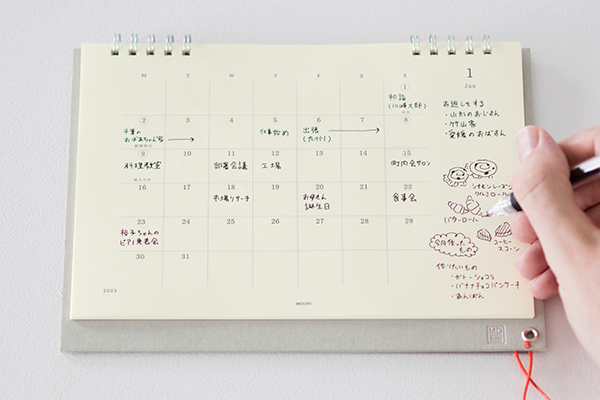 M T W T F S S
1
Jan
1
初詣
(川崎大師)
2 3 4 5 6 7 8
千葉の
おばあちゃん家
仕事始め
出張
(九州)
9 10 11 12 13 14 15
料理教室
部署会議
工場
町内会サロン
16 17 18 19 20 21 22
市場リサーチ
お母さん
誕生日
食事会
23 24 25 26 27 28 29
裕子ちゃんの
ピアノ発表会
30 31
2023
MIDORI
お返しをする
・山形のおじさん
・竹山家
・愛媛のおばさん
シナモンレーズン
クルミロール
バターロール
コーヒー
スコーン
今月作った
もの
作りたいもの
・ガトーショコラ
・バナナチョコパンケーキ
・あんぱん
MD